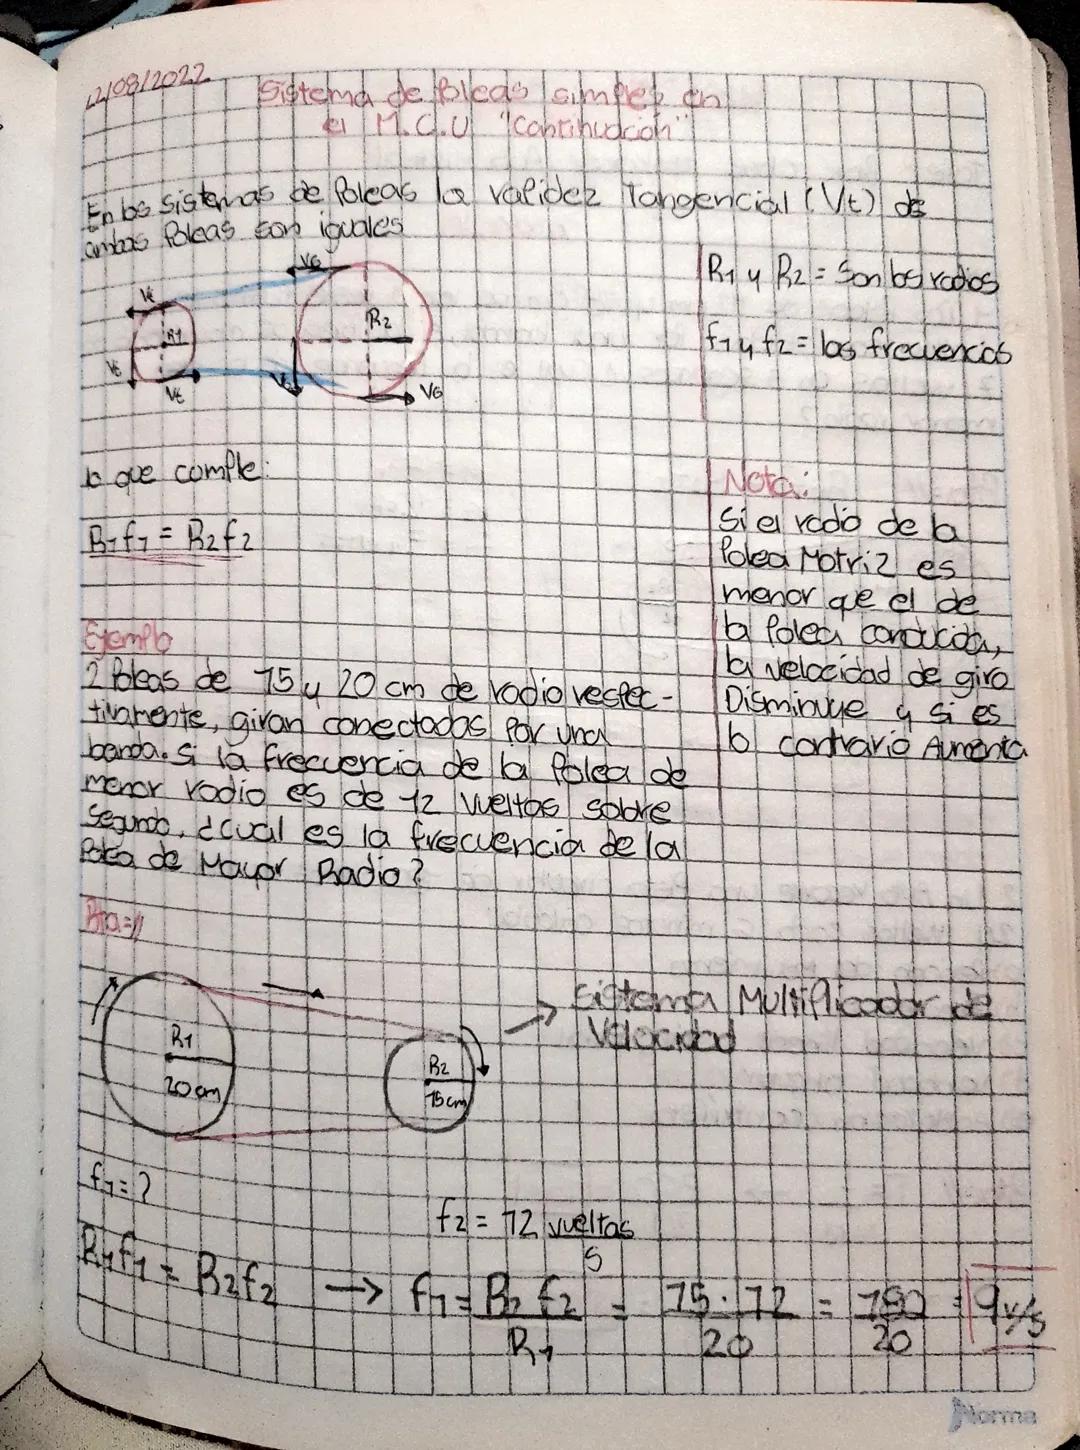 12/08/2022
Sistema de Poleas simples en
el M.C.U "Continuación"
En los sistemas de Poleas la validez Tangencial (Vt) de
ambas Poleas son iguales
R1 y R2 = Son los radios
f1 y f2 = las frecuencias
Vt
R1
Vt
Vt
Vt
R2
Vt
Vt
lo que comple:
R1f1 = R2f2
Nota:
Si el radio de la
Polea Motriz es
menor que el de
la Polea conducida,
la velocidad de giro
Disminuye y si es
lo contrario Aumenta
Ejemplo
2 Poleas de 15 y 20 cm de radio respec-
tivamente, giran conectadas Por una
banda. Si la frecuencia de la Polea de
menor radio es de 12 Vueltas sobre
Segundo, ¿cual es la frecuencia de la
Polea de Mayor Radio?
Rta=//
R1
20 cm
R2
15 cm
→ Sistema Multiplicador de
Velocidad
f1 = ?
f2 = 12 vueltas
s
R1f1 = R2f2 → f1 = R2 f2 / R1 = 15 · 12 / 20 = 180 / 20 = 9 v/s
Norma